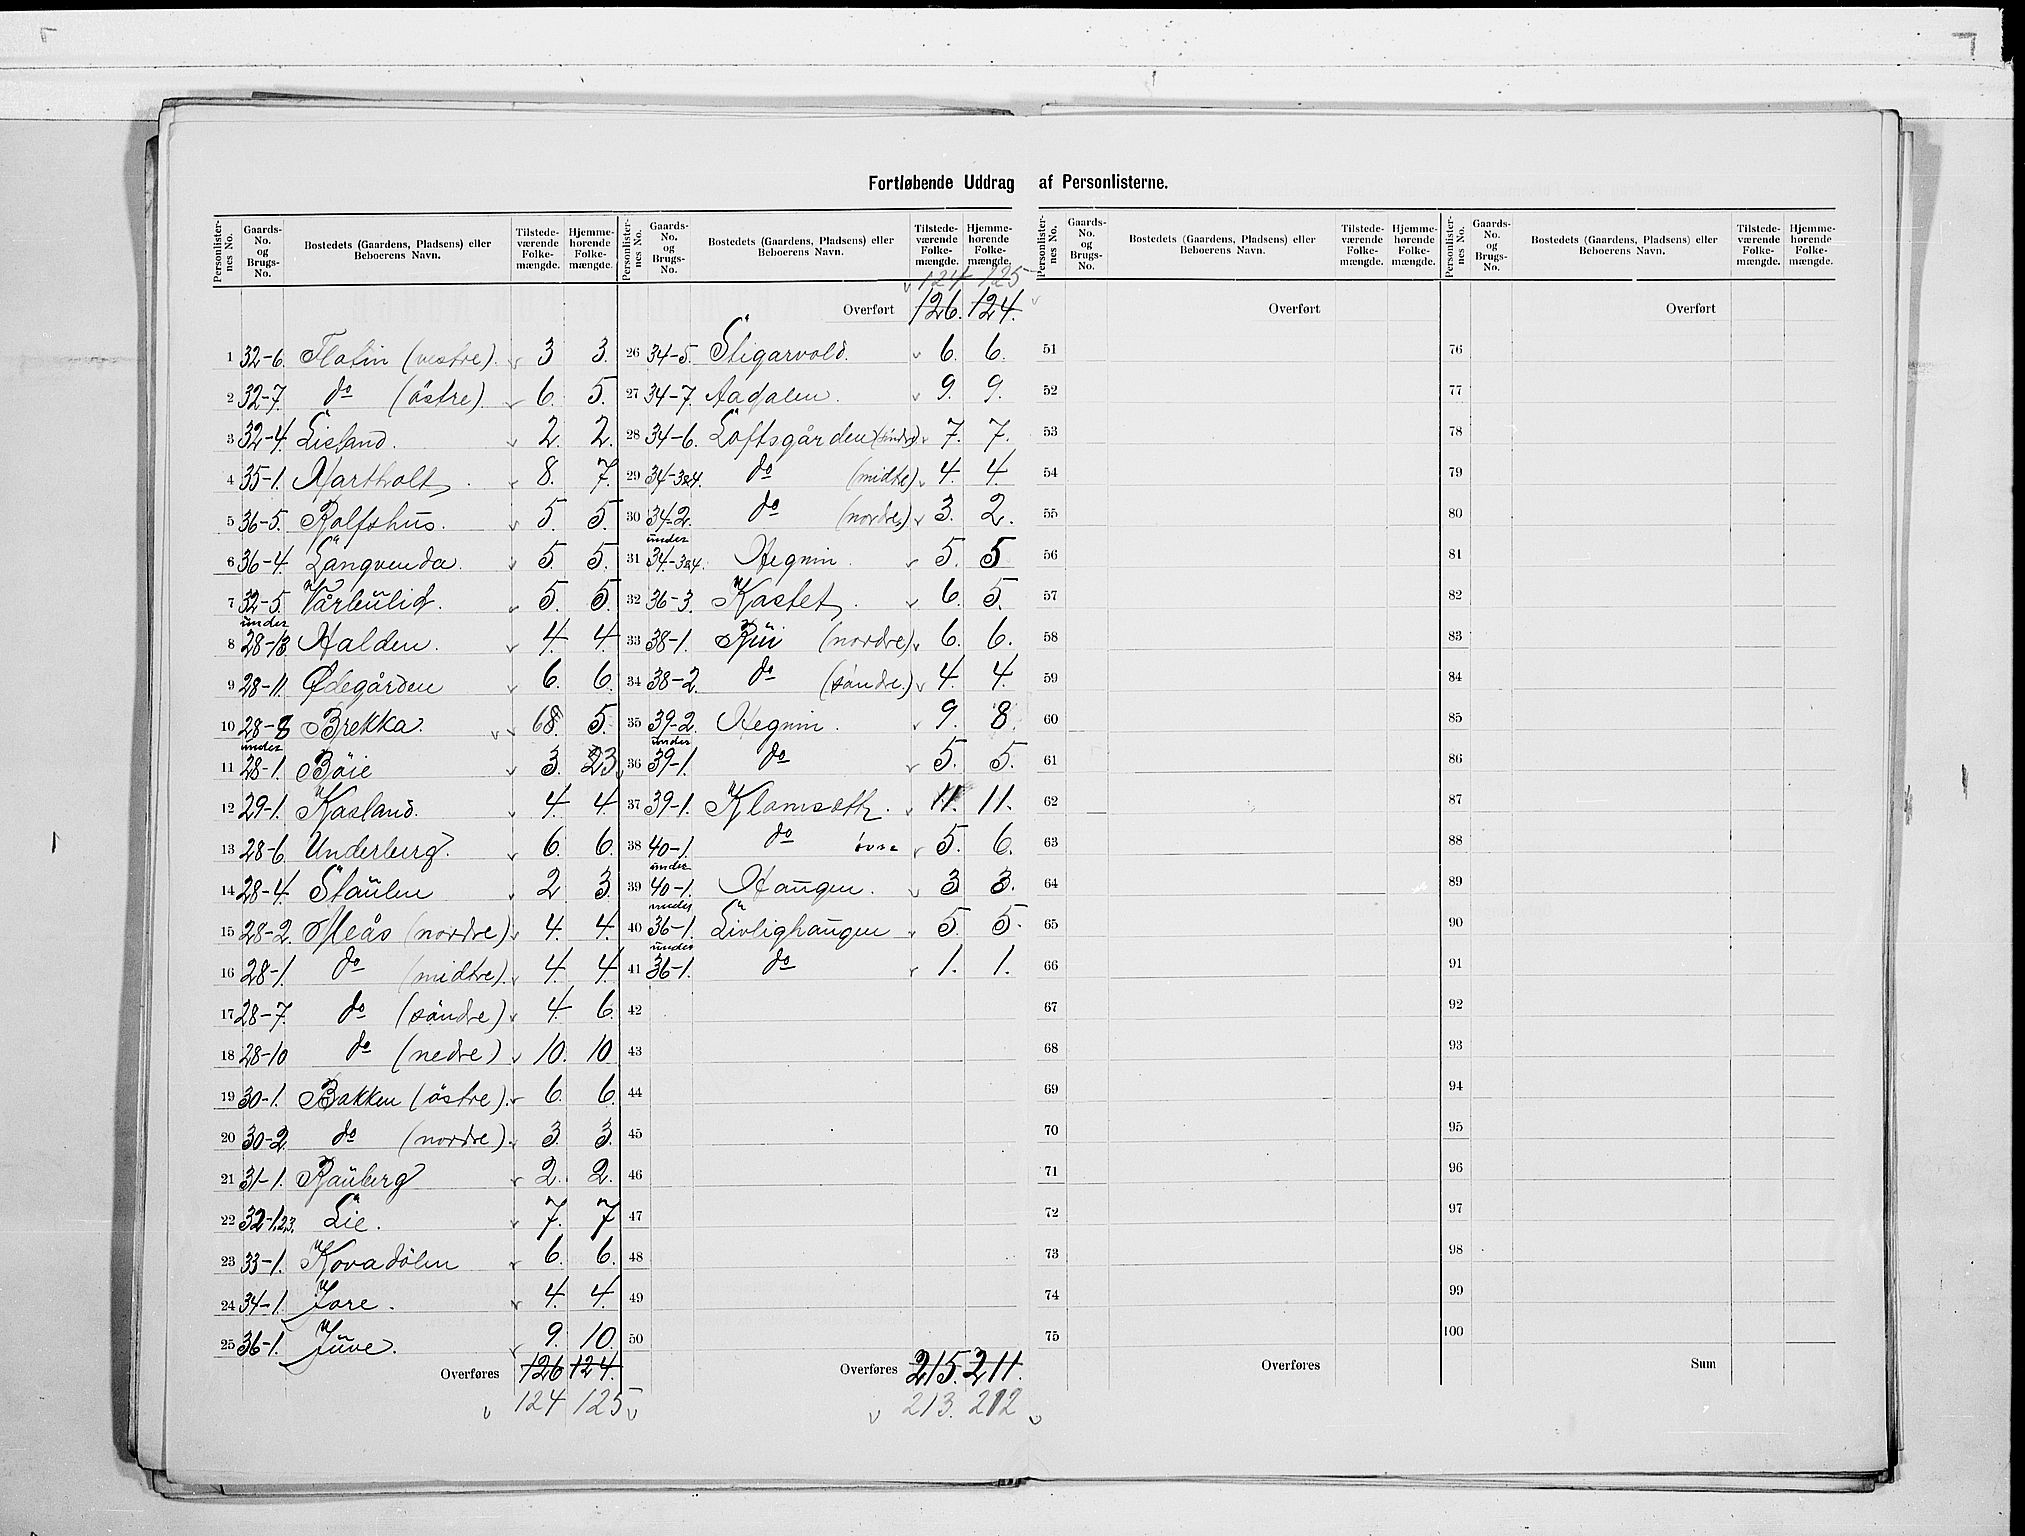 Fortløbende Uddrag af Personlisterne.
Personlisternes No. Gaards-No. og Brugs-No. Bostedets (Gaardens, Pladsens) eller Beboerens Navn. Tilstedeværende Folkemængde. Hjemmehørende Folkemængde.
1 32-6. Flatin (vestre). 3 3.
2 32-7. do (östre). 6. 5.
3 32-4. Lisland. 2. 2.
4 35-1. Martholt. 8. 7.
5 36-5. Rolfshus. 5. 5.
6 36-4. Långvenda. 5. 5.
7 32-5. Vårkulid. 5. 5.
8 under 28-13 Halden. 4. 4.
9 28-11. Ødegården 6. 6.
10 28-8 Brekka. 68. 5.
11 under 28-1. Böie 3. 23
12 29-1. Kasland. 4. 4.
13 28-6. Underberg. 6. 6.
14 28-4. Staulen 2 3.
15 28-2. Meås (nordre) 4. 4.
16 28-1. do (midtre). 4. 4.
17 28-7. do (söndre) 4. 6.
18 28-10 do (nedre) 10. 10.
19 30-1. Bakken (östre). 6. 6.
20 30-2 do (nordre). 3. 3.
21 31-1. Rauberg 2. 2.
22 32-1,2,3. Lie. 7. 7
23 33-1. Kovadölen 6. 6.
24 34-1. Jore. 4. 4.
25 36-1. Juve. 9. 10.
Overføres 126 124.
124 125
Personlisternes No. Gaards-No. og Brugs-No. Bostedets (Gaardens, Pladsens) eller Beboerens Navn. Tilstedeværende Folkemængde. Hjemmehørende Folkemængde.
124 125
Overført 126. 124.
26 34-5. Stigarvold. 6. 6.
27 34-7. Aadalen. 9. 9.
28 34-6. Loftsgården (söndre) 7. 7.
29 34-3&4. do (midtre) 4. 4.
30 34-2. do (nordre) 3. 2.
31 under 34-3&4. Hegnin. 5. 5
32 36-3. Kastet. 6. 5.
33 38-1. Rui (nordre) 6. 6.
34 38-2. do (söndre.) 4. 4.
35 39-2 Hegnin. 9. 8.
36 under 39-1. do 5. 5.
37 39-1. Klomseth. 11. 11.
38 40-1. do övre 5. 6.
39 under 40-1. Haugen. 3 3.
40 under 36-1. Livlighaugen 5. 5.
41 under 36-1. do 1. 1.
42
43
44
45
46
47
48
49
50
Overføres 215. 211.
213. 212
Personlisternes No. Gaards-No. og Brugs-No. Bostedets (Gaardens, Pladsens) eller Beboerens Navn. Tilstedeværende Folkemængde. Hjemmehørende Folkemængde.
Overført
51
52
53
54
55
56
57
58
59
60
61
62
63
64
65
66
67
68
69
70
71
72
73
74
75
Overføres
Personlisternes No. Gaards-No. og Brugs-No. Bostedets (Gaardens, Pladsens) eller Beboerens Navn. Tilstedeværende Folkemængde. Hjemmehørende Folkemængde.
Overført
76
77
78
79
80
81
82
83
84
85
86
87
88
89
90
91
92
93
94
95
96
97
98
99
100
Sum